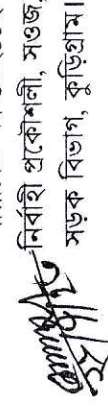 নির্বাহী প্রকৌশলী, সওজ,
সড়ক বিভাগ, কুড়িগ্রাম।